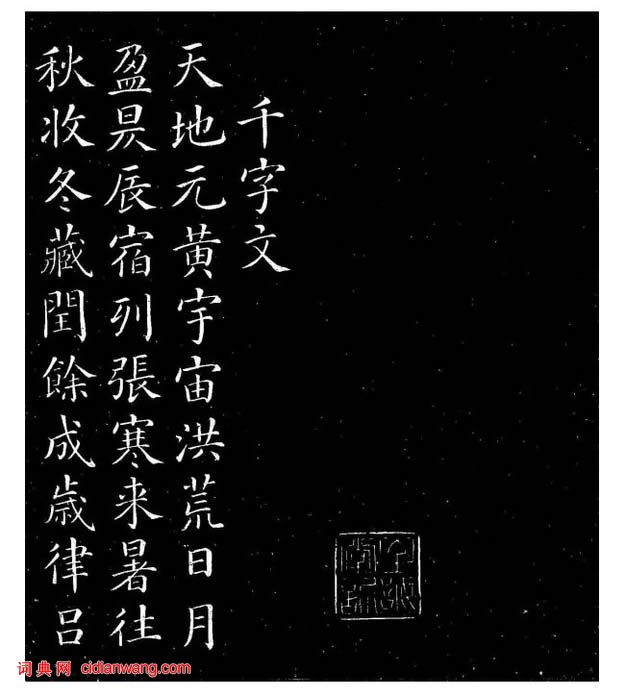 千字文
天地元黄宇宙洪荒日月
盈昃辰宿列張寒来暑往
秋收冬藏閏餘成歳律吕
词典网 cidianwang.com